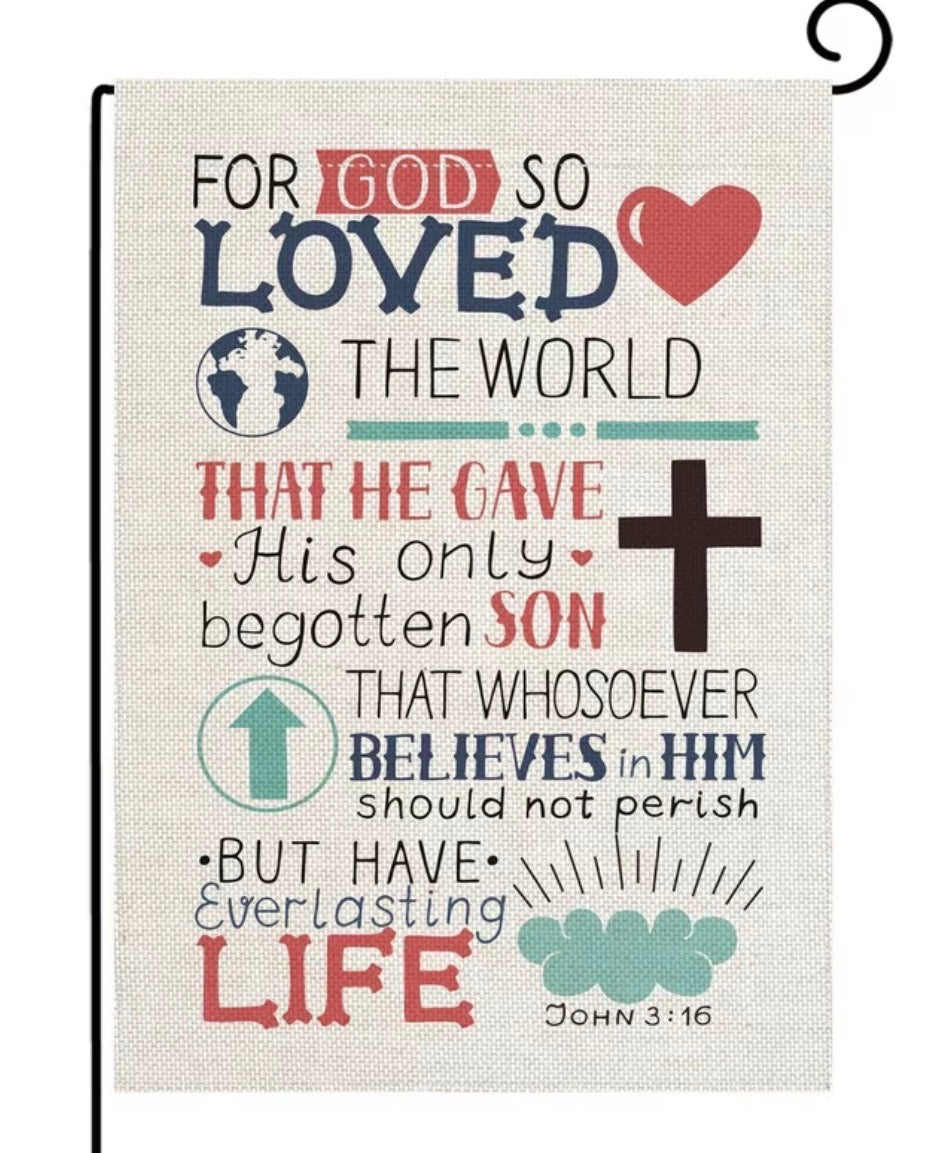 FOR GOD SO
LOVED
THE WORLD
THAT HE GAVE
His only
begotten SON
THAT WHOSOEVER
BELIEVES in HIM
should not perish
•BUT HAVE•
Everlasting
LIFE
JOHN 3:16